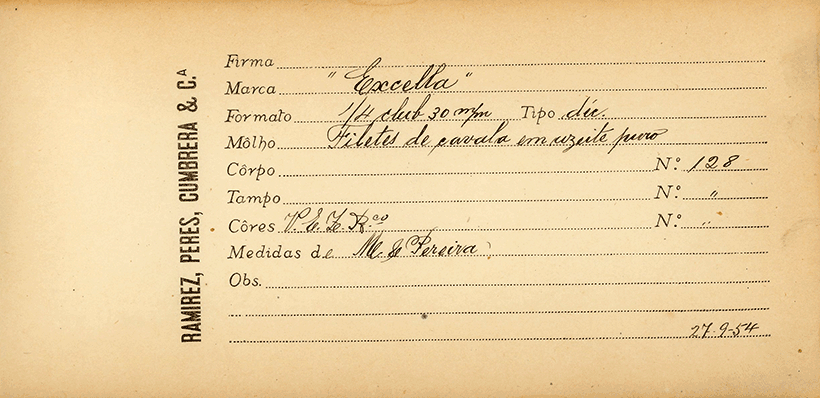 RAMIREZ, PERES, CUMBRERA & C.ª
Firma
Marca "Excella"
Formato 1/4 club 30 m/m Tipo déc.
Môlho Filetes de cavala em azeite puro
Côrpo N.º 128
Tampo N.º "
Côres V. E. Z. R.co N.º "
Medidas de M. & Pereira
Obs.
27-9-54